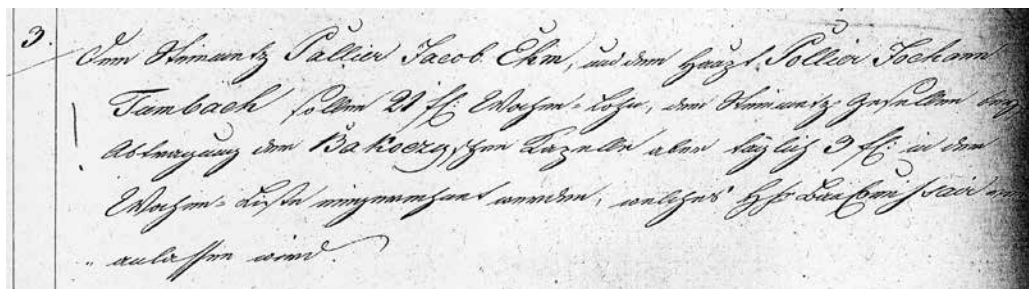 3.
Dem Steinmetz Pallier Jacob Ehm, und dem Haupt Pollier Johann
Tambach sollen 21 f: Wochen-Lohn, den Steinmetz Gesellen bey
Abtragung der Bakoczyschen Kapelle aber täglich 3 f: in der
Wochen-Liste eingerechnet werden, welches H:
anlassen wird.